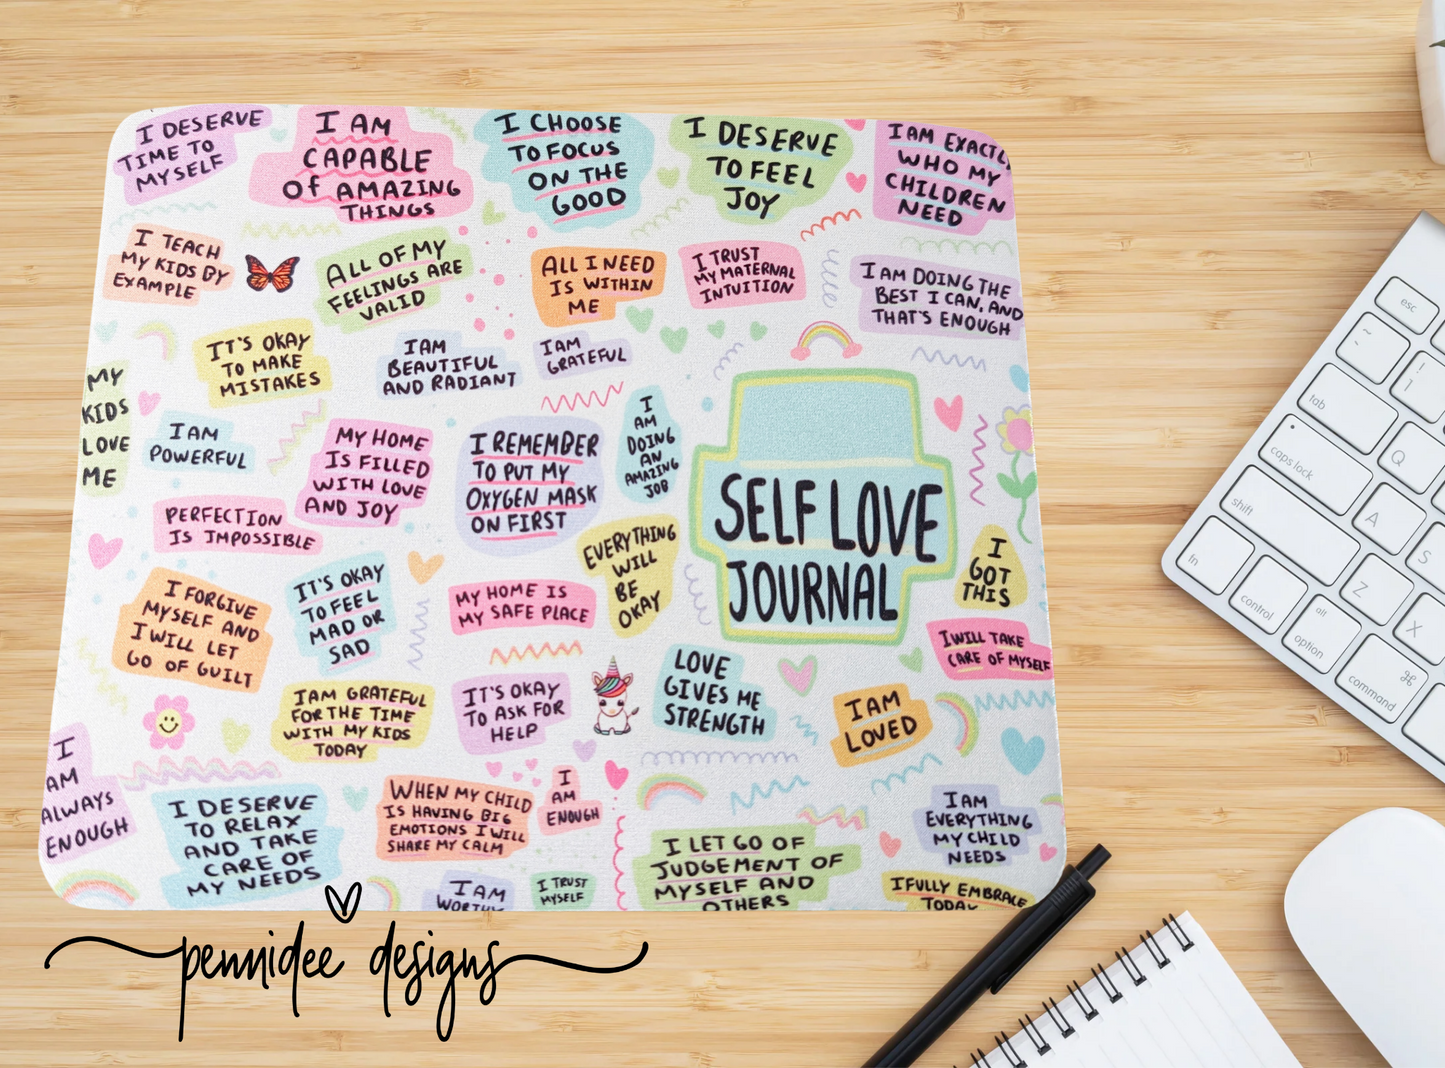 I DESERVE
TIME TO
MYSELF
I AM
CAPABLE
Of AMAZING
THINGS
I CHOOSE
TO FOCUS
ON THE
GOOD
I DESERVE
TO FEEL
JOY
I AM EXACTLY
WHO MY
CHILDREN
NEED
I TEACH
MY KIDS BY
EXAMPLE
ALL OF MY
FEELINGS ARE
VALID
ALL I NEED
IS WITHIN
ME
I TRUST
MY MATERNAL
INTUITION
I AM DOING THE
BEST I CAN, AND
THAT'S ENOUGH
IT'S OKAY
TO MAKE
MISTAKES
I AM
BEAUTIFUL
AND RADIANT
I AM
GRATEFUL
MY
KIDS
LOVE
ME
I AM
POWERFUL
MY HOME
IS FILLED
WITH LOVE
AND JOY
I REMEMBER
TO PUT MY
OXYGEN MASK
ON FIRST
I
AM
DOING
AN
AMAZING
JOB
SELF LOVE
JOURNAL
PERFECTION
IS IMPOSSIBLE
EVERYTHING
WILL
BE
OKAY
I
GOT
THIS
I FORGIVE
MYSELF AND
I WILL LET
GO OF GUILT
IT'S OKAY
TO FEEL
MAD OR
SAD
MY HOME IS
MY SAFE PLACE
I WILL TAKE
CARE OF MYSELF
I AM GRATEFUL
FOR THE TIME
WITH MY KIDS
TODAY
IT'S OKAY
TO ASK FOR
HELP
LOVE
GIVES ME
STRENGTH
I AM
LOVED
I
AM
ALWAYS
ENOUGH
I DESERVE
TO RELAX
AND TAKE
CARE OF
MY NEEDS
WHEN MY CHILD
IS HAVING BIG
EMOTIONS I WILL
SHARE MY CALM
I
AM
ENOUGH
I AM
EVERYTHING
MY CHILD
NEEDS
I LET GO OF
JUDGEMENT OF
MYSELF AND
OTHERS
I AM
WORTHY
I TRUST
MYSELF
I FULLY EMBRACE
TODAY
pennidee designs
esc
tab
caps lock
shift
fn
control
alt
option
command
⌘
~
!
1
Q
A
S
Z
X